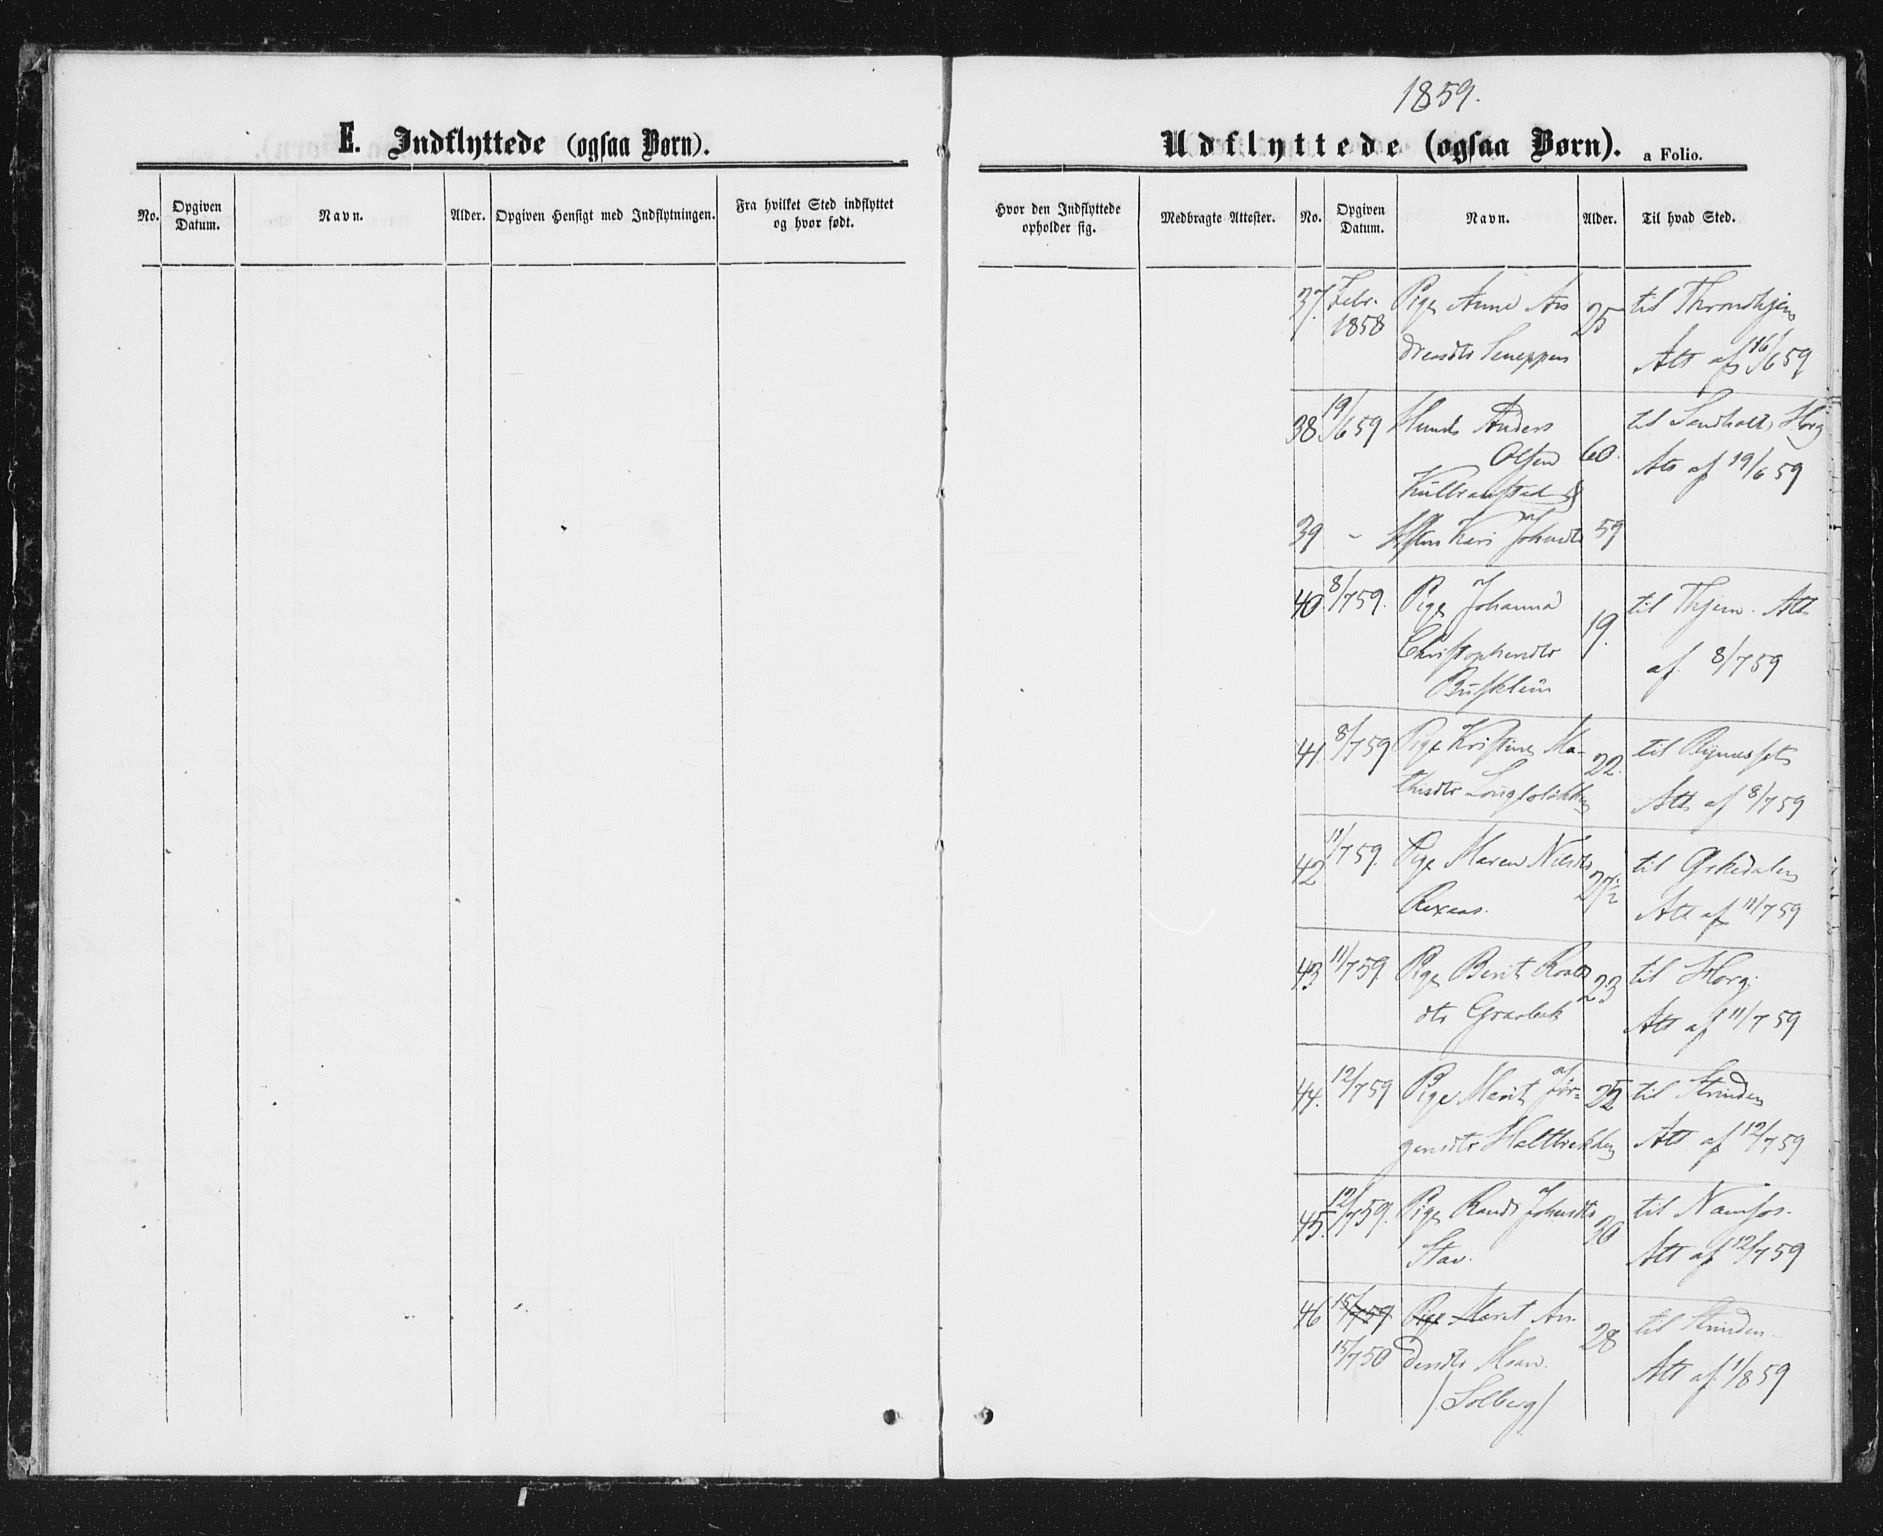 E. Indflyttede (ogsaa Børn).
No.
Opgiven Datum.
Navn.
Alder.
Opgiven Hensigt med Indflytningen.
Fra hvilket Sted indflyttet og hvor født.
1859.
Udflyttede (ogsaa Børn).
a Folio.
Hvor den Indflyttede opholder sig.
Medbragte Attester.
No.
Opgiven Datum.
Navn.
Alder.
Til hvad Sted.
37. Febr. Pige Anne An 25 til Throndhjem
1858 dreasdtr Att af 16/6 59
38. 19/6 59 Anders til Hørg
Olsen 60. Att af 19/6 59
39 - Kari Johnsdtr 59
40. 8/7 59. Pige Johanna 19. til Thjem. Att
Christophersdtr af 8/7 59
Busklein
41. 8/7 59 Pige Kristine Ma- 22. til
thisdtr Att af 8/7 59
42 11/7 59. Pige Maren Nilsdtr til Ørkedalen
Att af 11/7 59
43 11/7 59. Pige Berit 23 til Hørg.
dtr Graabæk Att af 11/7 59
44. 12/7 59 Pige Marit Jør- til Strinden
gensdtr Att af 12/7 59
45. 12/7 59. Pige Randi Johnsdtr 30 til Namsos.
Stav. Att af 12/7 59
46 15/7 59. Pige Marit An- 28 til Strinden
15/7 50 dersdtr Moan. Att af 1/8 59
/Solberg/